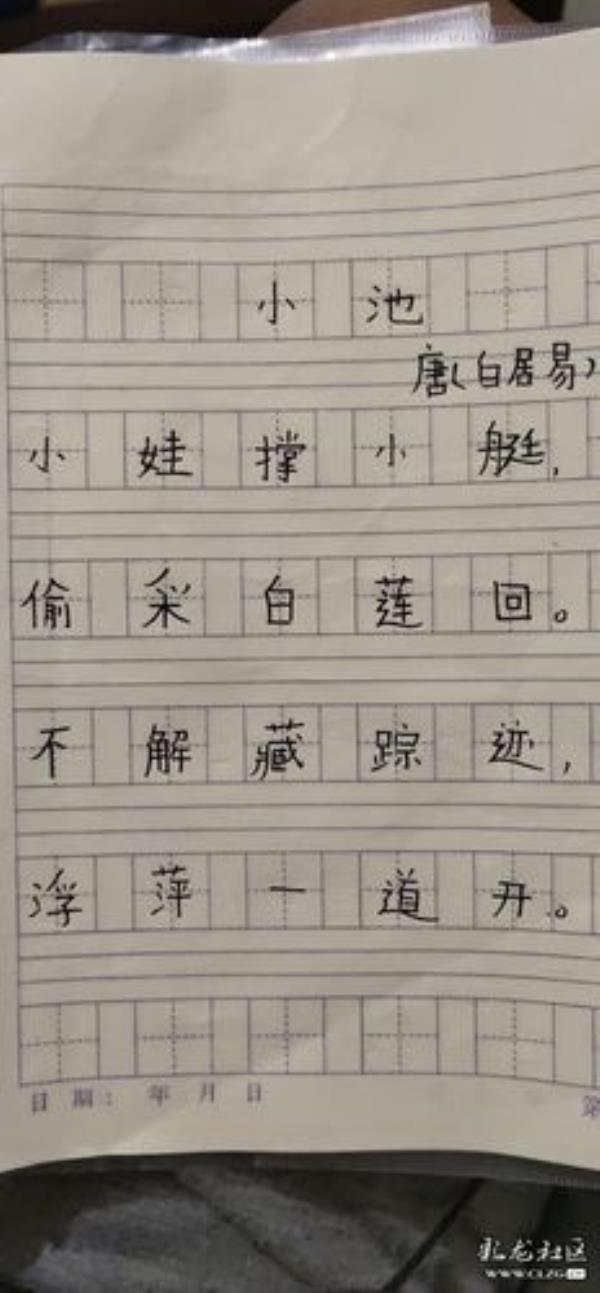 小池
唐(白居易)
小娃撑小艇,
偷采白莲回。
不解藏踪迹,
浮萍一道开。
日期: 年 月 日
第
WWW.CLZG.CN